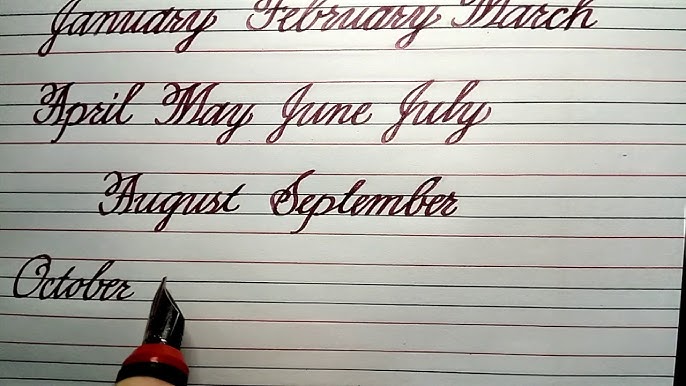 January February March
April May June July
August September
October